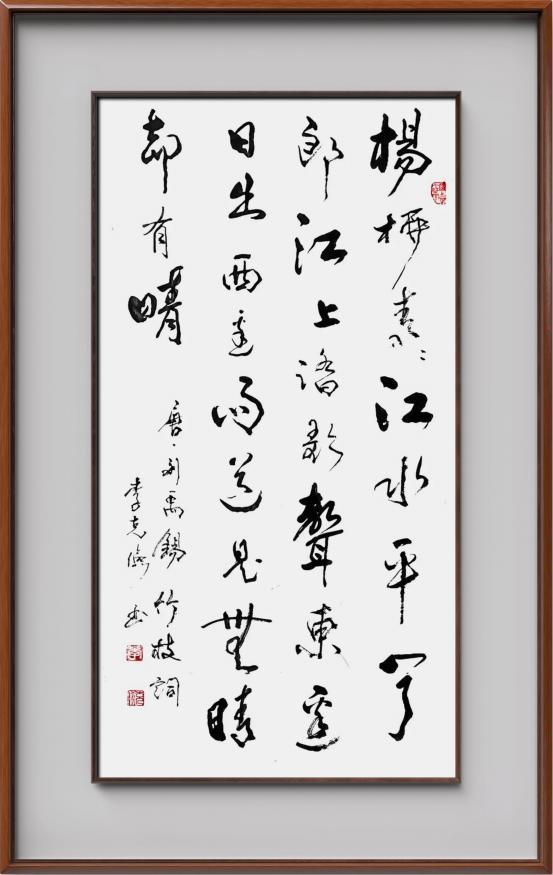 楊柳青青江水平聞
郎江上踏歌聲東邊
日出西邊雨道是無晴
却有晴
唐·劉禹錫竹枝詞
李克修書